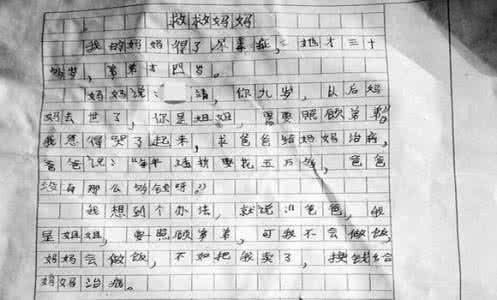 救救妈妈
我的妈妈得了尿毒症,她才三十
岁,弟弟才四岁。
妈妈说:清,你九岁,以后妈
妈去世了,你是姐姐,需要照顾弟弟
我想得哭了起来,求爸爸给妈妈治病,
爸爸说:“每年透析要花五万多,爸爸
没有那么多钱呀。”
我想到个办法,就说“爸爸,我
是姐姐,要照顾弟弟,可我不会做饭,
妈妈会做饭,不如把我卖了,换钱给
妈妈治病。